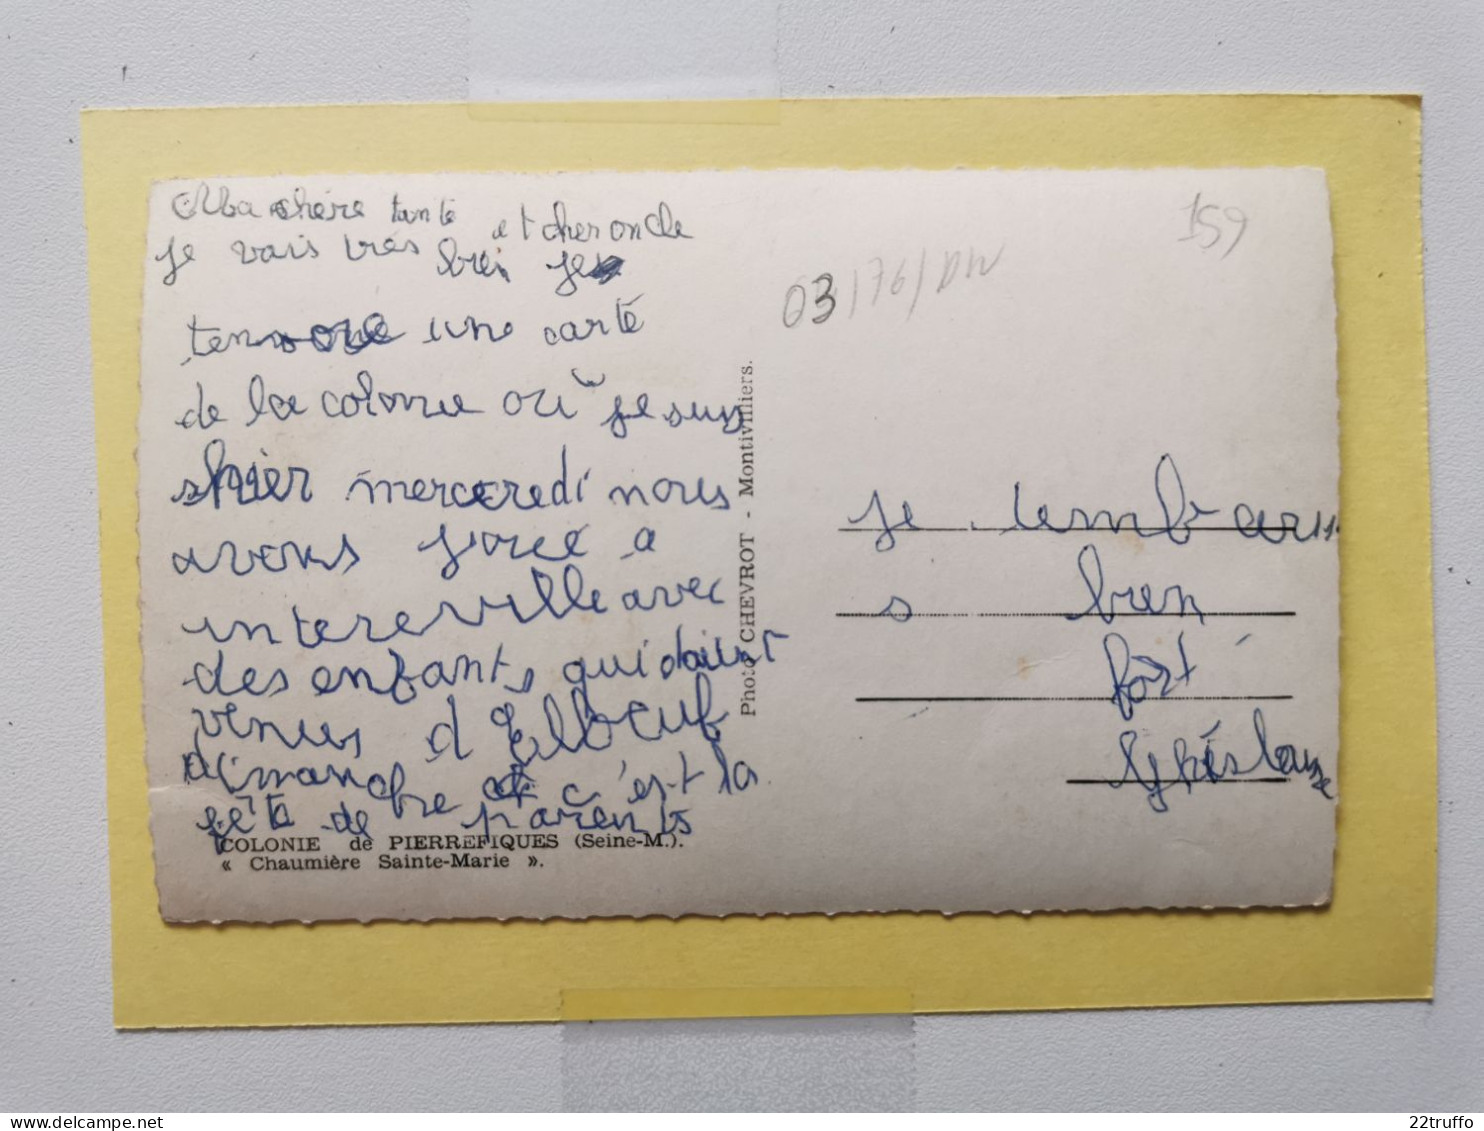 Ma chère tante et cher oncle
je vais très bien je
tenvoie une carte
de la colonie où je suis
hier mercredi nous
avons joué a
interville avec
des enfants qui
venus d'Elbeuf
dimanche c'est la
fête de parents
COLONIE de PIERREFIQUES (Seine-M.).
« Chaumière Sainte-Marie ».
Photo CHEVROT - Montivilliers.
159
03/76/DIV
je tembrass
s bien
fort
22truffo